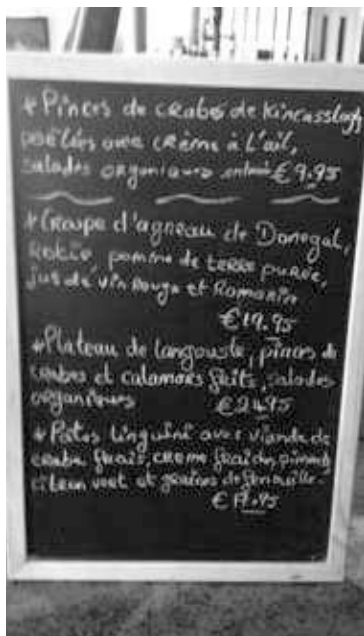 * Pinces de crabe de Kincasslagh
poêlées avec crème à l'ail,
salades organiques entrée €9.95
* Croupe d'agneau de Donegal,
Rotie pomme de terre purée,
jus de vin Rouge et Romarin
€19.95
* Plateau de langouste, pinces de
crabes et calamars frits, salades
organiques €24.95
* Pâtes linguini avec viande de
crabe frais, creme fraiche, piment,
citron vert et graines de fenouille -
€17.95